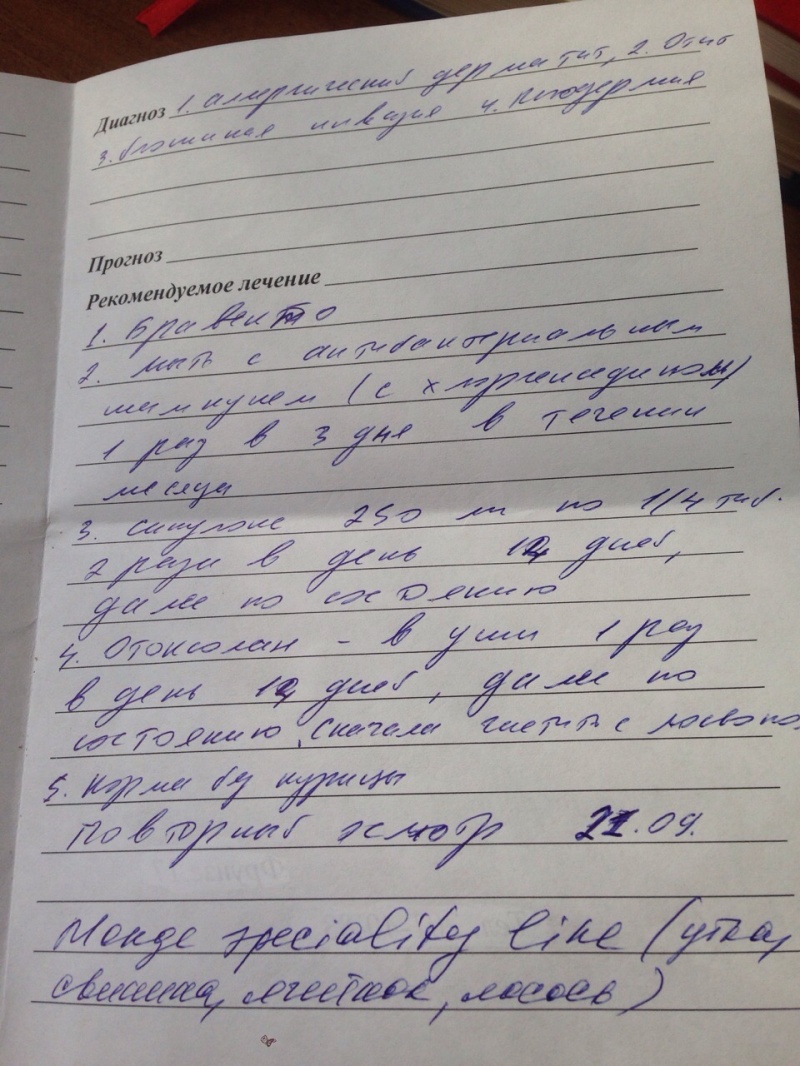 Диагноз 1. аллергический дерматит, 2. Отит
3. блошиная инвазия 4. пиодермия
Прогноз
Рекомендуемое лечение
1. Бравекто
2. мыть с антибактериальным
шампунем (с хлоргексидином)
1 раз в 3 дня в течении
месяца
3. синулокс 250 мг по 1/4 таб.
2 раза в день дней,
далее по состоянию
4. Отоксолан - в уши 1 раз
в день дней, далее по
состоянию. Сначала чистить с
5. Корма без курицы
Повторный осмотр 21.09.
Monge speciality line (утка,
свинина, ягненок, лосось)